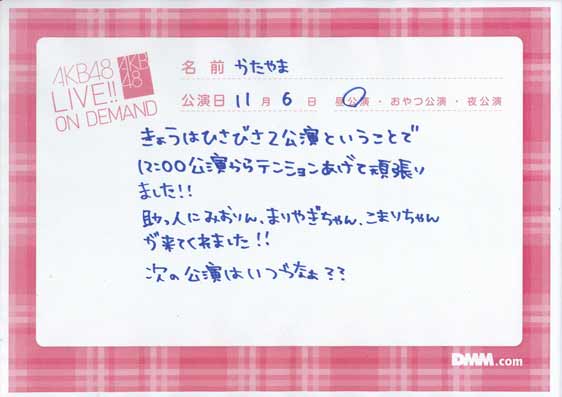 AKB48
LIVE!!
ON DEMAND
AKB
48
名前 かたやま
公演日 11月6日 昼公演・おやつ公演・夜公演
きょうはひさびさ2公演ということで
12:00公演からテンションあげて頑張り
ました!!
助っ人にみおりん、まりやぎちゃん、こまりちゃん
が来てくれました!!
次の公演はいつかなぁ??
DMM.com